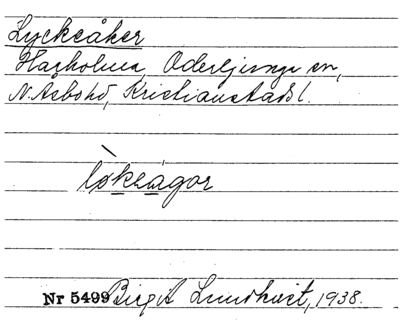 Lyckeåker
Harholma, Oderljunga sn,
N. Åsbohd, Kristianstads l.
lø̀keågor
Nr 5499 Birgit Lundkvist, 1938.